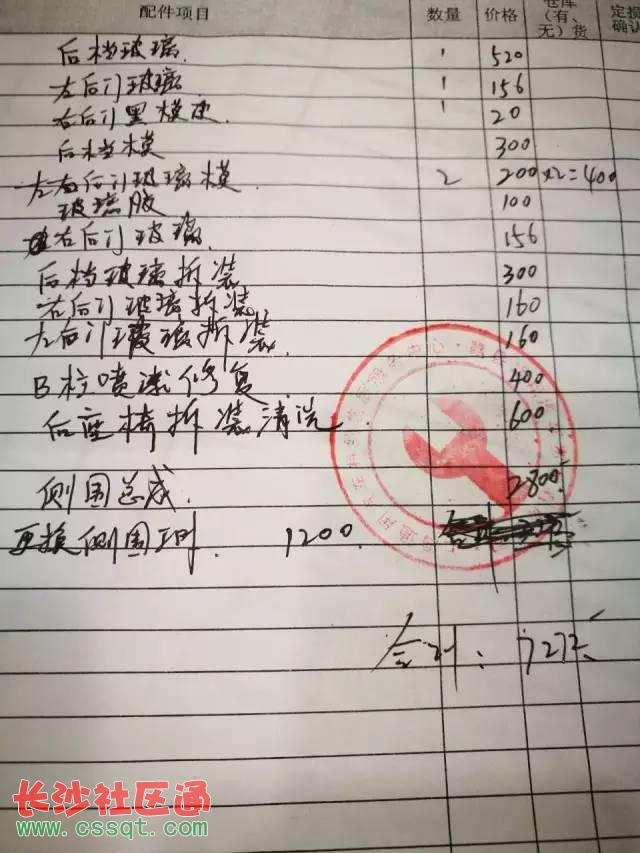 配件项目 数量 价格 仓库(有、无)货 定损确认
后档玻璃 1 520
左后门玻璃 1 156
右后门黑模皮 1 20
后档模 300
左右后门玻璃模 2 200 ×2=400
玻璃胶 100
右后门玻璃 156
后档玻璃拆装 300
右后门玻璃拆装 160
左后门玻璃拆装 160
B柱喷漆修复 400
后座椅拆装清洗 600
侧围总成 2800
更换侧围工时 1200
合计: 7272元
长沙社区通
www.cssqt.com